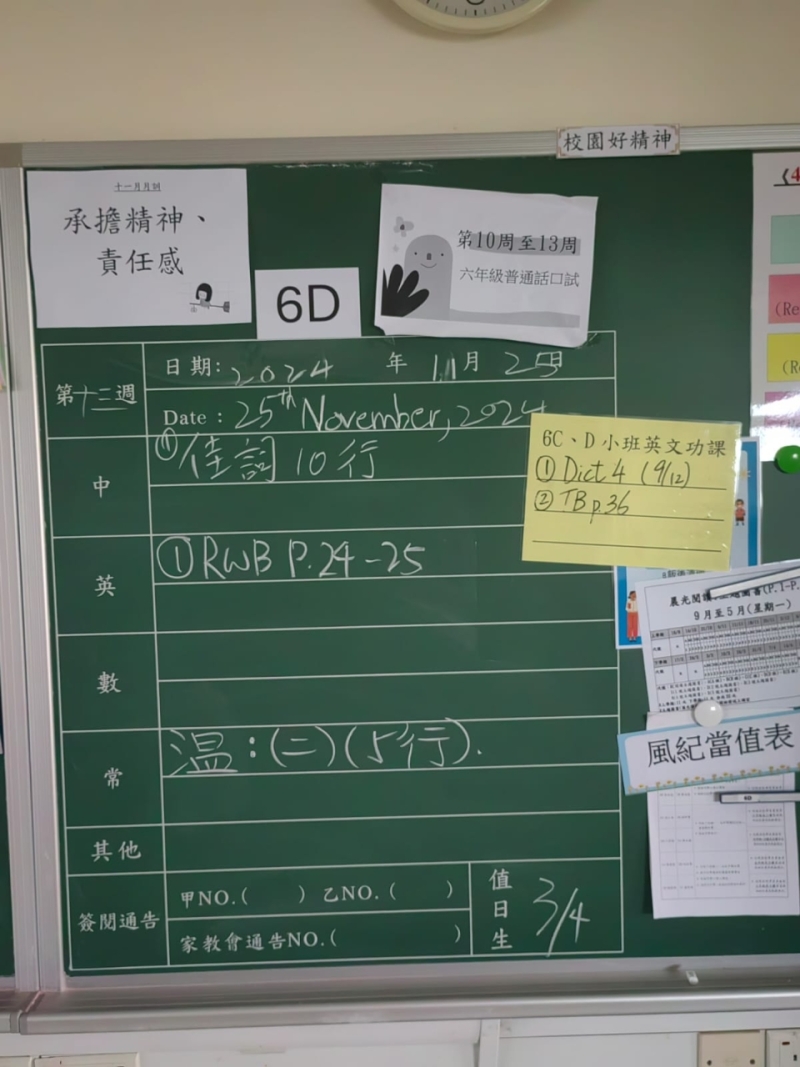 校園好精神
十一月月訓
承擔精神、
責任感
6D
第10周至13周
六年級普通話口試
第十三週
日期: 2024 年 11月 25日
Date : 25th November, 2024
中
① 佳詞 10行
英
① RWB P.24-25
數
常
溫：(二)(5行).
其他
簽閱通告
甲NO.( ) 乙NO.( )
家教會通告NO.( )
值日生
3/4
6C、D 小班英文功課
① Dict 4 (9/12)
② TB p.36
9月至5月(星期一)
風紀當值表